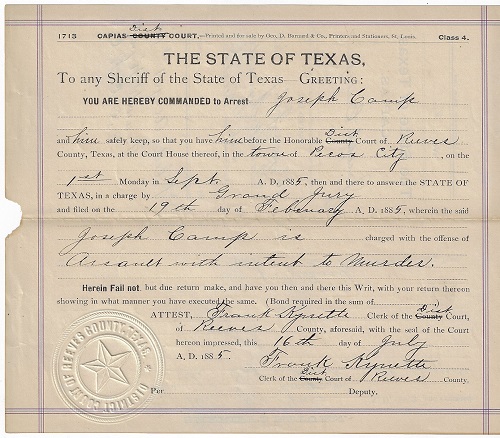 1713 CAPIAS Dist COUNTY COURT,—Printed and for sale by Geo. D. Barnard & Co., Printers and Stationers, St. Louis. Class 4.
THE STATE OF TEXAS,
To any Sheriff of the State of Texas—GREETING:
YOU ARE HEREBY COMMANDED to Arrest Joseph Camp
and him safely keep, so that you have him before the Honorable Dist County Court of Reeves
County, Texas, at the Court House thereof, in the town of Pecos City, on the
1st Monday in Sept. A. D. 1885, then and there to answer the STATE OF
TEXAS, in a charge by Grand Jury
and filed on the 19th day of February A. D. 1885, wherein the said
Joseph Camp is charged with the offense of
Assault with intent to Murder.
Herein Fail not, but due return make, and have you then and there this Writ, with your return thereon
showing in what manner you have executed the same. (Bond required in the sum of
ATTEST, Frank Kyrette Clerk of the Dist County Court,
of Reeves County, aforesaid, with the seal of the Court
hereon impressed, this 16th day of July
A. D. 1885. Frank Kyrette
Clerk of the County Dist Court of Reeves County.
Per Deputy.
DISTRICT COURT OF REEVES COUNTY, TEXAS.